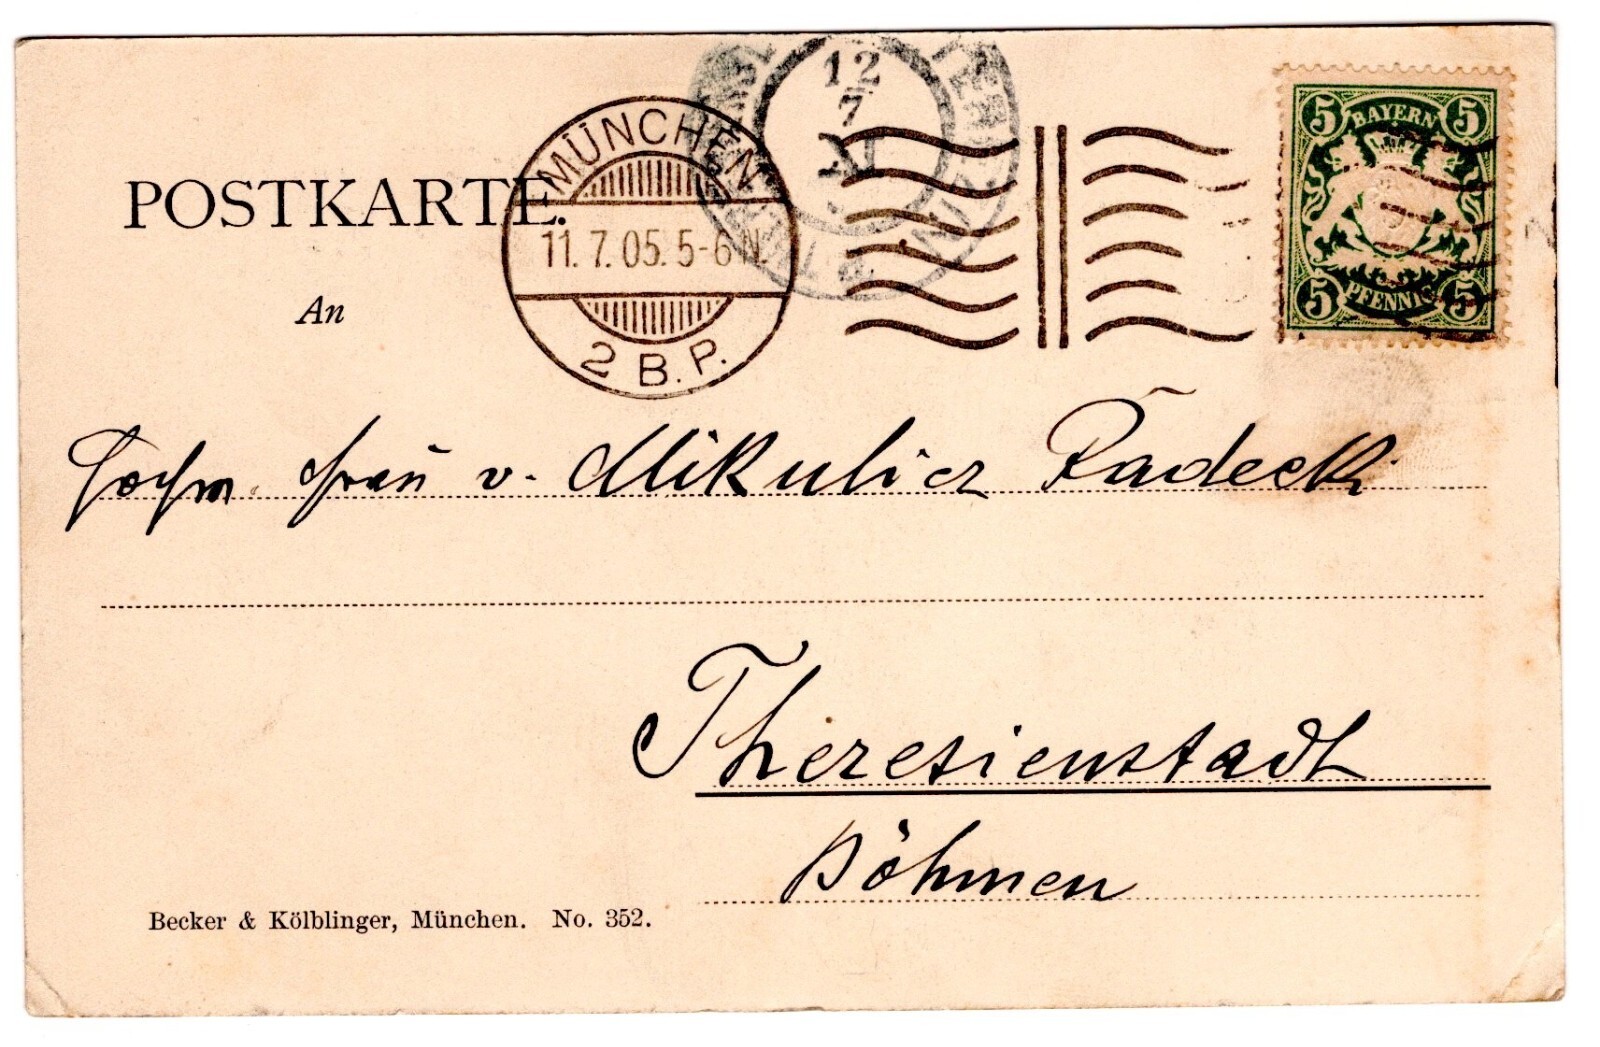 12
7
XI
MÜNCHEN
11.7.05.5-6N.
2 B.P.
5 BAYERN 5
5 PFENNIG 5
POSTKARTE.
An
Hochw. Frau v. Mikulicz Radecki
Theresienstadt
Böhmen
Becker & Kölblinger, München. No. 352.